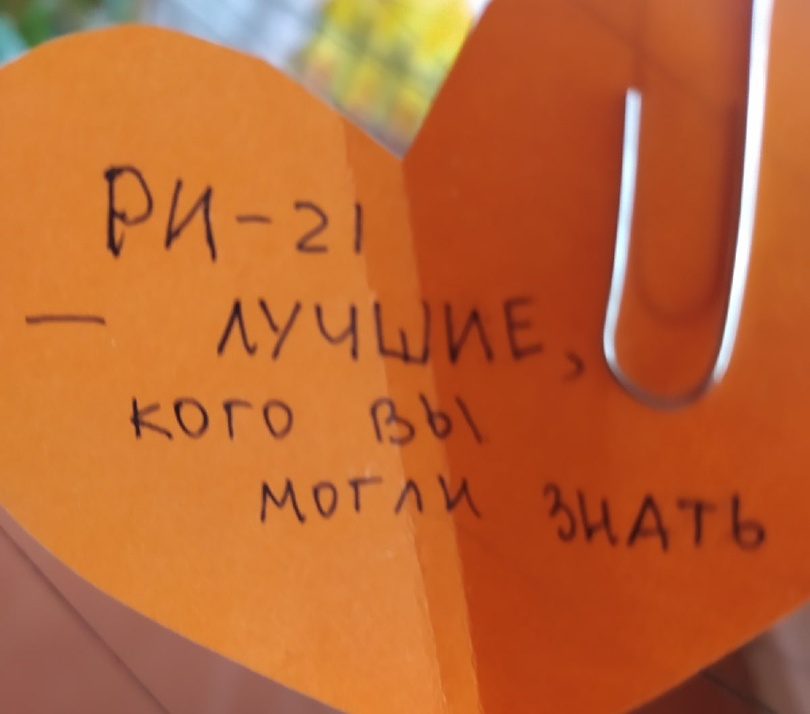 РИ-21
— ЛУЧШИЕ,
КОГО ВЫ
МОГЛИ ЗНАТЬ